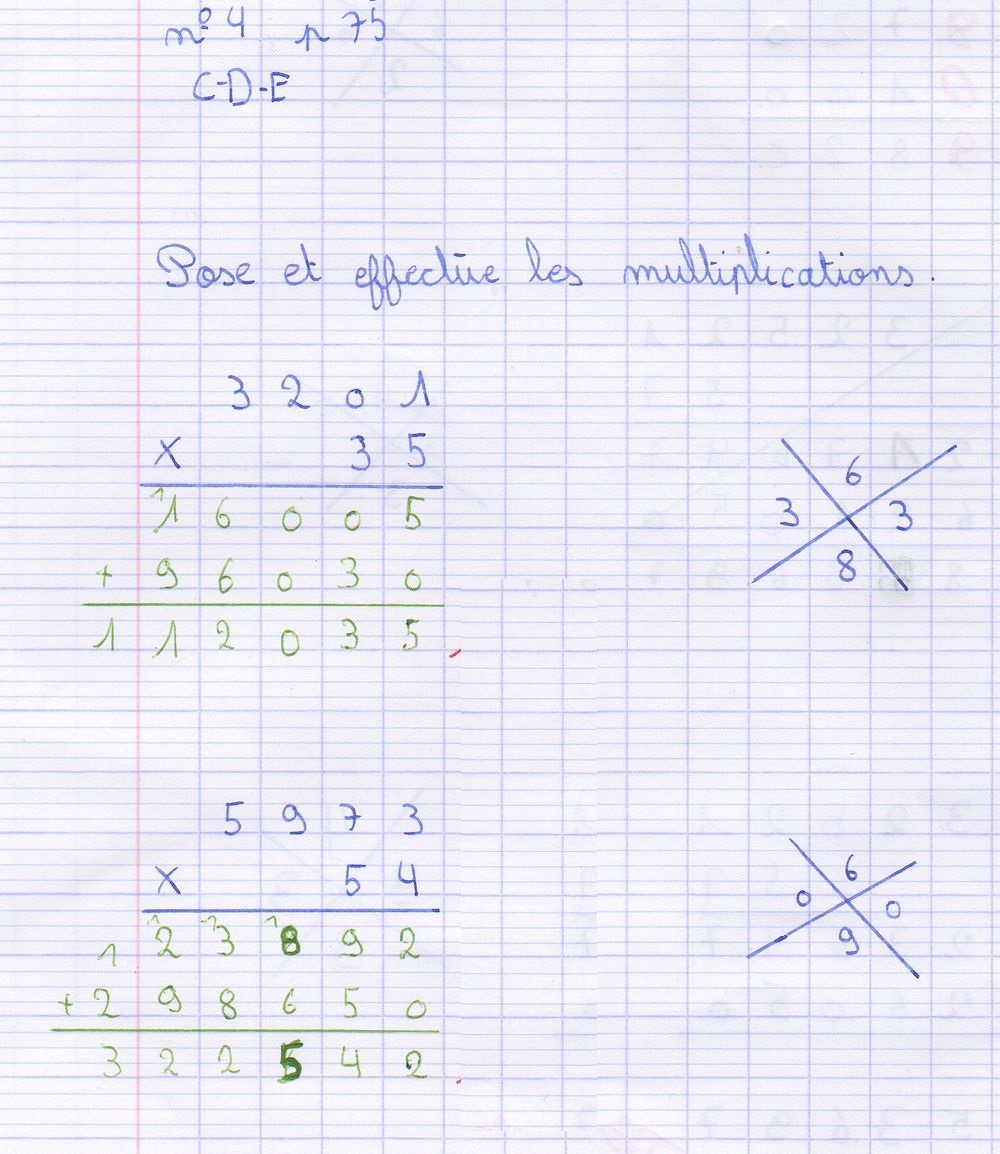 n° 4 p 75
C-D-E
Pose et effectue les multiplications.
3 2 0 1
x 3 5
1 6 0 0 5
+ 9 6 0 3 0
1 1 2 0 3 5
6
3 3
8
5 9 7 3
x 5 4
1 1 1
1 2 3 8 9 2
+ 2 9 8 6 5 0
3 2 2 5 4 2
6
0 0
9